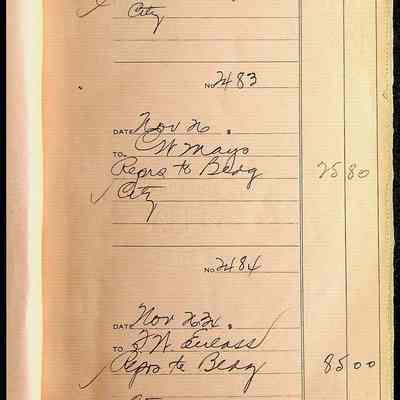 City
No 2483
DATE Nov 26
TO CW Mayo
Reprs to Bldg 25 80
City
No 2484
DATE Nov 26
TO
Reprs to Bldg 85 00
City